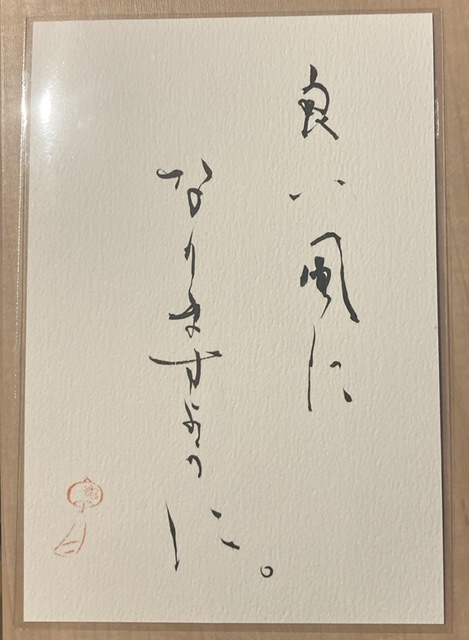 良い風に
なりますように。